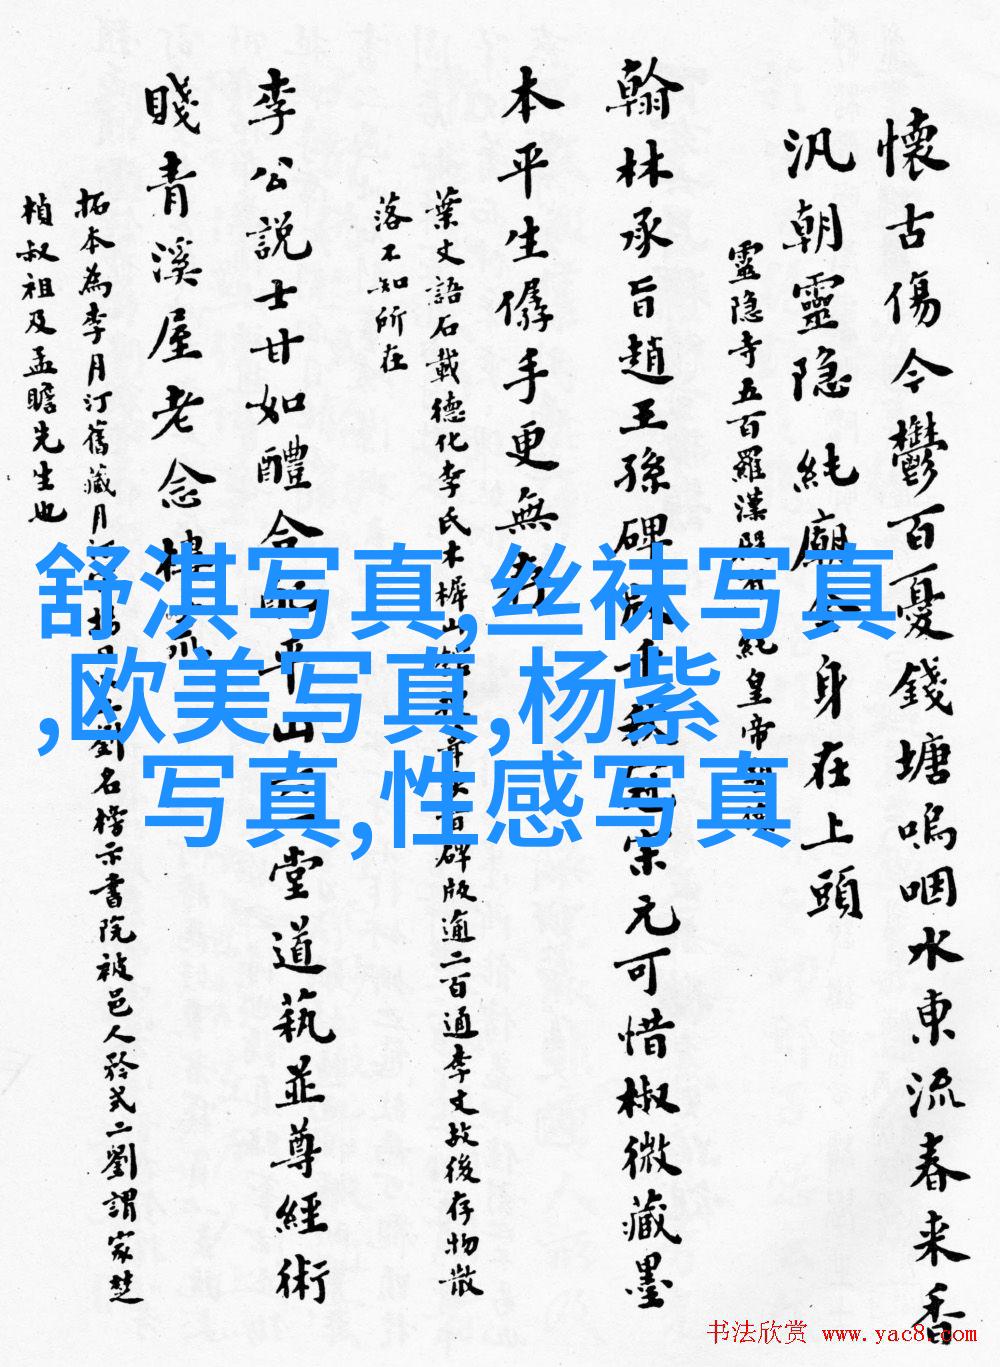 懷古傷今鬱百憂錢塘嗚咽水東流春来香
汎朝靈隐純廟金身在上頭
靈隐寺五百羅漢 純皇帝
翰林承旨趙王孫碑 宋元可惜椒微藏墨
本平生儔手更無
葉文語石載德化李氏木樨山 百碑版逾二百通李文故後存物散
落不知所在
李公説士甘如醴合 平山 堂道蓺並尊經術
賤青溪屋老念樓
拓本為李月汀舊藏月 劉名榜示書院被邑人矜式二劉謂家楚
楨叔祖及孟瞻先生也
舒淇写真,丝袜写真
,欧美写真,杨紫
写真,性感写真
书法欣赏 www.yac8.com